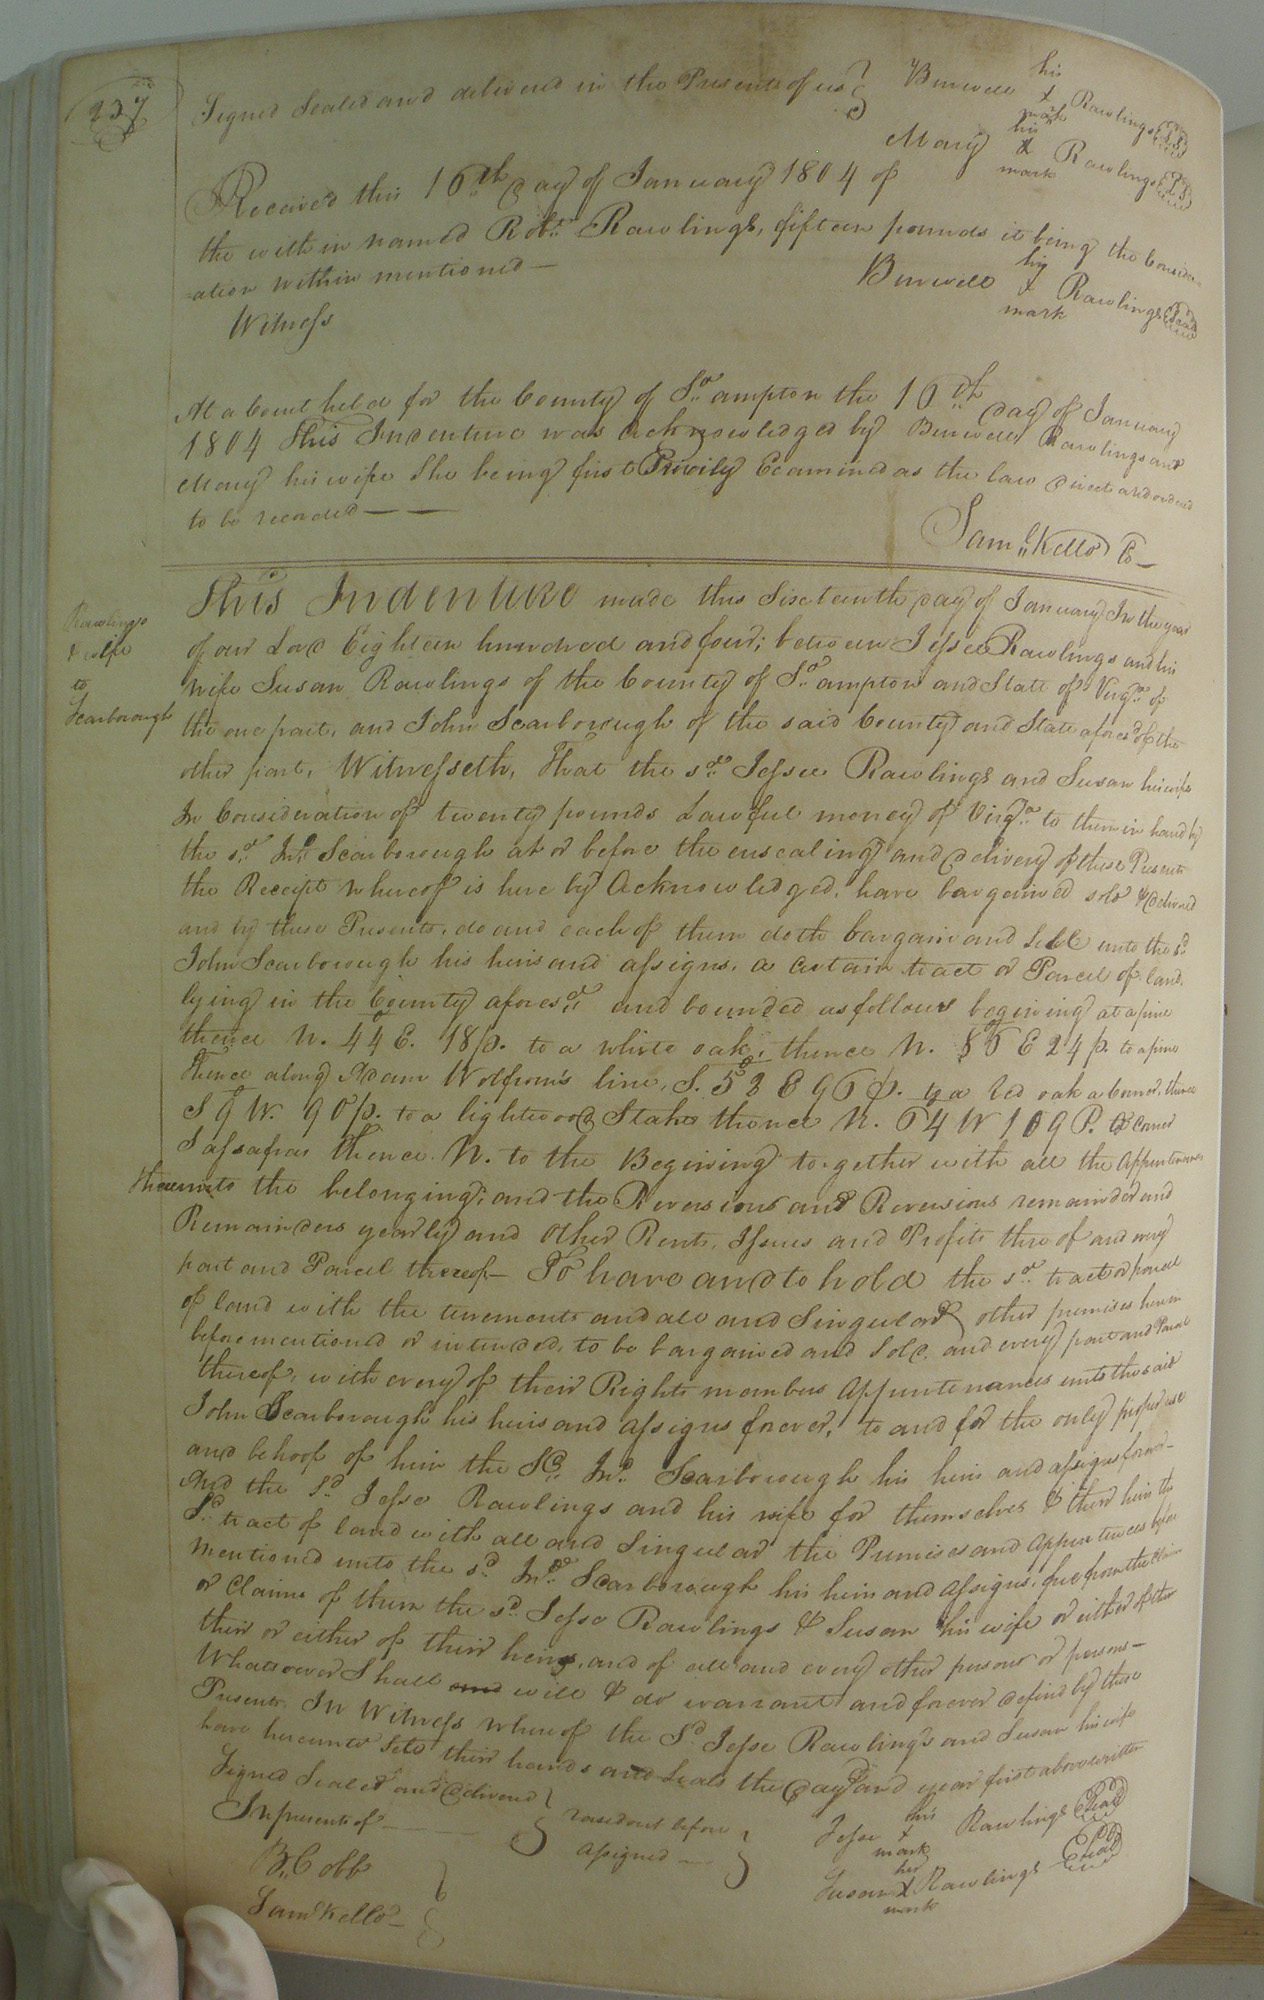 237
Signed Sealed and delivered in the Presents of us } Burwell his x mark Rawlings (LS)
Mary his x mark Rawlings (LS)
Received this 16th day of January 1804 of
the within named Robt. Rawlings, fifteen pounds it being the Consider-
ation within mentioned —
Burwell his x mark Rawlings (Seal)
Witness
At a Court held for the County of So.ampton the 16th day of January
1804 This Indenture was acknowledged by Burwell Rawlings and
Mary his wife She being first Privily Examined as the law direct and ordered
to be recorded — —
Saml. Kello C —
Rawlings
& wife
to
Scarborough
This Indenture made this Sixteenth day of January In the year
of our Lord Eighteen hundred and four; between Jessee Rawlings and his
wife Susan Rawlings of the County of So.ampton and State of Virga. of
the one part, and John Scarborough of the said County and State aforesd. of the
other part, Witnesseth, That the sd. Jessee Rawlings and Susan his wife
In Consideration of twenty pounds Lawful money of Virga. to them in hand by
the sd. Jno. Scarborough at or before the ensealing and delivery of these Presents
the Receipt whereof is here by Acknowledged, have bargained sold & delivered
and by these Presents, do and each of them doth bargain and Sell unto the sd.
John Scarborough his heirs and assigns, a certain tract or Parcel of land,
lying in the County aforesd. and bounded as follows begining at a pine
thence N. 44 E. 18 p. to a white oak, thence N. 85 E 24 p. to a pine
Thence along Adam Wolfrom's line, S. 58 E 96 p. to a red oak a corner, thence
S 9 W. 90 p. to a lightwood Stake thence N. 64 W 109 P. to Corner
Sassafras thence N. to the Begining together with all the Appurtenances
thereunto the belonging; and the Reversions and Reversions remainder and
Remainders yearly and other Rents, Issues and Profits thereof and every
part and Parcel thereof — To have and to hold the sd. tract or parcel
of land with the tenements and all and Singular other premises herein
before mentioned or intended, to be bargained and Sold, and every part and Parcel
thereof, with every of their Rights members Appurtenances unto the said
John Scarborough his heirs and assigns forever, to and for the only proper use
and behoof of him the Sd. Jno. Scarborough his heirs and assigns forever —
And the sd. Jesse Rawlings and his wife for themselves & their heirs the
Sd. tract of land with all and Singular the Premises and Appurtences before
mentioned unto the sd. Jno. Scarborough his heirs and Assigns, free from the Claim
or Claims of them the sd. Jesse Rawlings & Susan his wife or either of them
their or either of their heirs, and of all and every other person or persons —
Whatsoever Shall and will & do warrant and forever defend by these
Presents In Witness whereof the Sd. Jesse Rawlings and Susan his wife
have hereunto Sett their hands and Seals the day and year first above written
Signed Sealed and Delivered
In presents of —
} raised out before
Assigned — }
Jesse his x mark Rawlings (Seal)
Susan her x mark Rawlings (Seal)
B. Cobb
Saml. Kello —